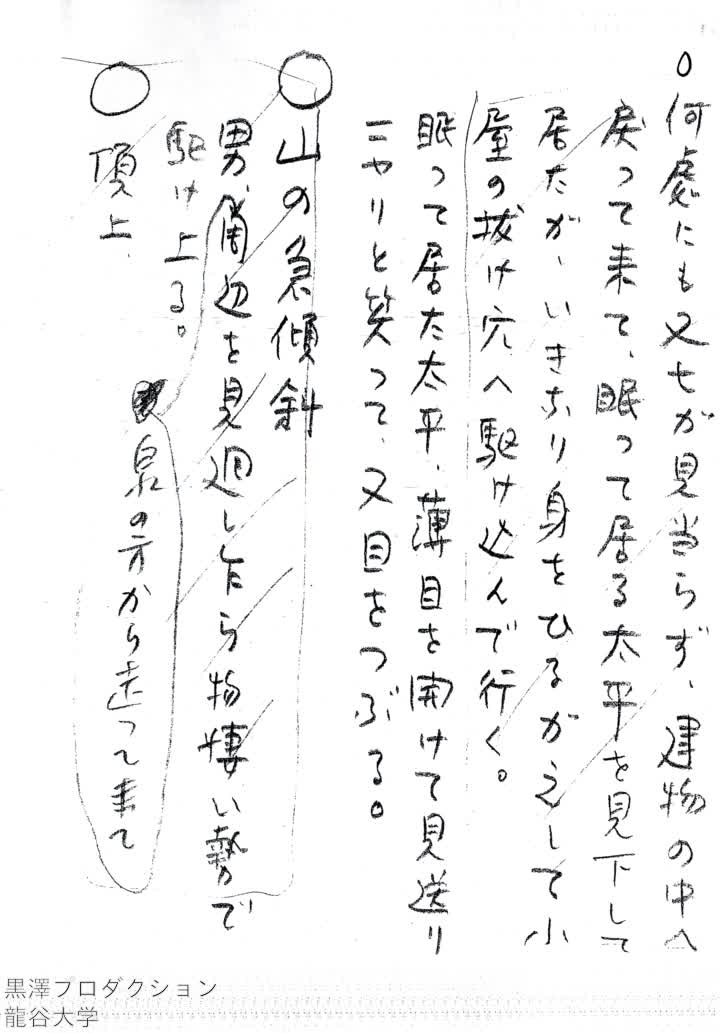 ○何處にも又七が見当らず、建物の中へ
戻って来て、眠って居る太平を見下して
居たが、いきなり身をひるがえして小
屋の抜け穴へ駆け込んで行く。
眠って居た太平、薄目を開けて見送り
ニヤリと笑って、又目をつぶる。
○山の急傾斜
男、周辺を見廻したら物凄い勢で
駆け上る。
泉の方から走って来て
○頂上、
黒澤プロダクション
龍谷大学